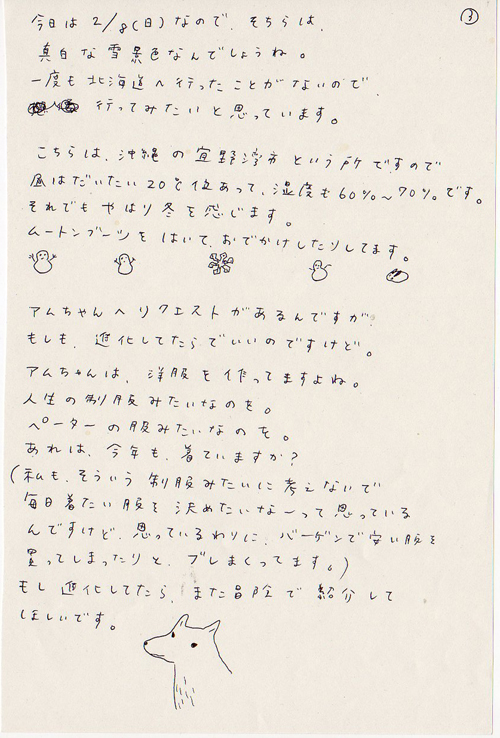 ③
今日は 2/8(日)なので、そちらは、
真白な雪景色なんでしょうね。
一度も北海道へ行ったことがないので、
行ってみたいと思っています。
こちらは、沖縄の宜野湾市という所ですので
昼はだいたい20℃位あって、湿度も60%〜70%です。
それでもやはり冬を感じます。
ムートンブーツをはいて、おでかけしたりしてます。
アムちゃんへリクエストがあるんですが、
もしも、進化してたらでいいのですけど。
アムちゃんは、洋服を作ってますよね。
人生の制服みたいなのを。
ペーターの服みたいなのを。
あれは、今年も、着ていますか?
(私も、そういう制服みたいに考えないで
毎日着たい服を決めたいなーって思っている
んですけど、思っているわりに、バーゲンで安い服を
買ってしまったりと、ブレまくってます。)
もし進化してたら、また冒険で紹介して
ほしいです。